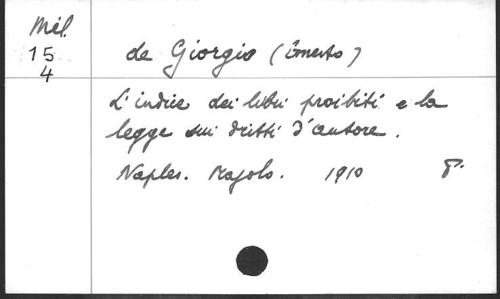 Mél.
15
4
de Giorgio (Ernesto)
L'indice dei libri proibiti e la
legge sui diritti d'autore.
Naples. Majolo. 1910 8°.